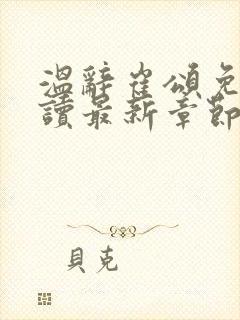 溫辭崔頌免
讀最新章節
貝克